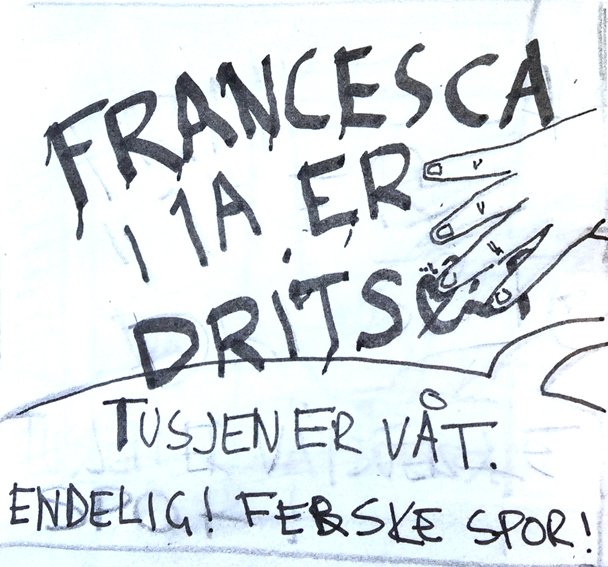 FRANCESCA
I 1A ER
DRITS
TUSJEN ER VÅT.
ENDELIG! FERSKE SPOR!